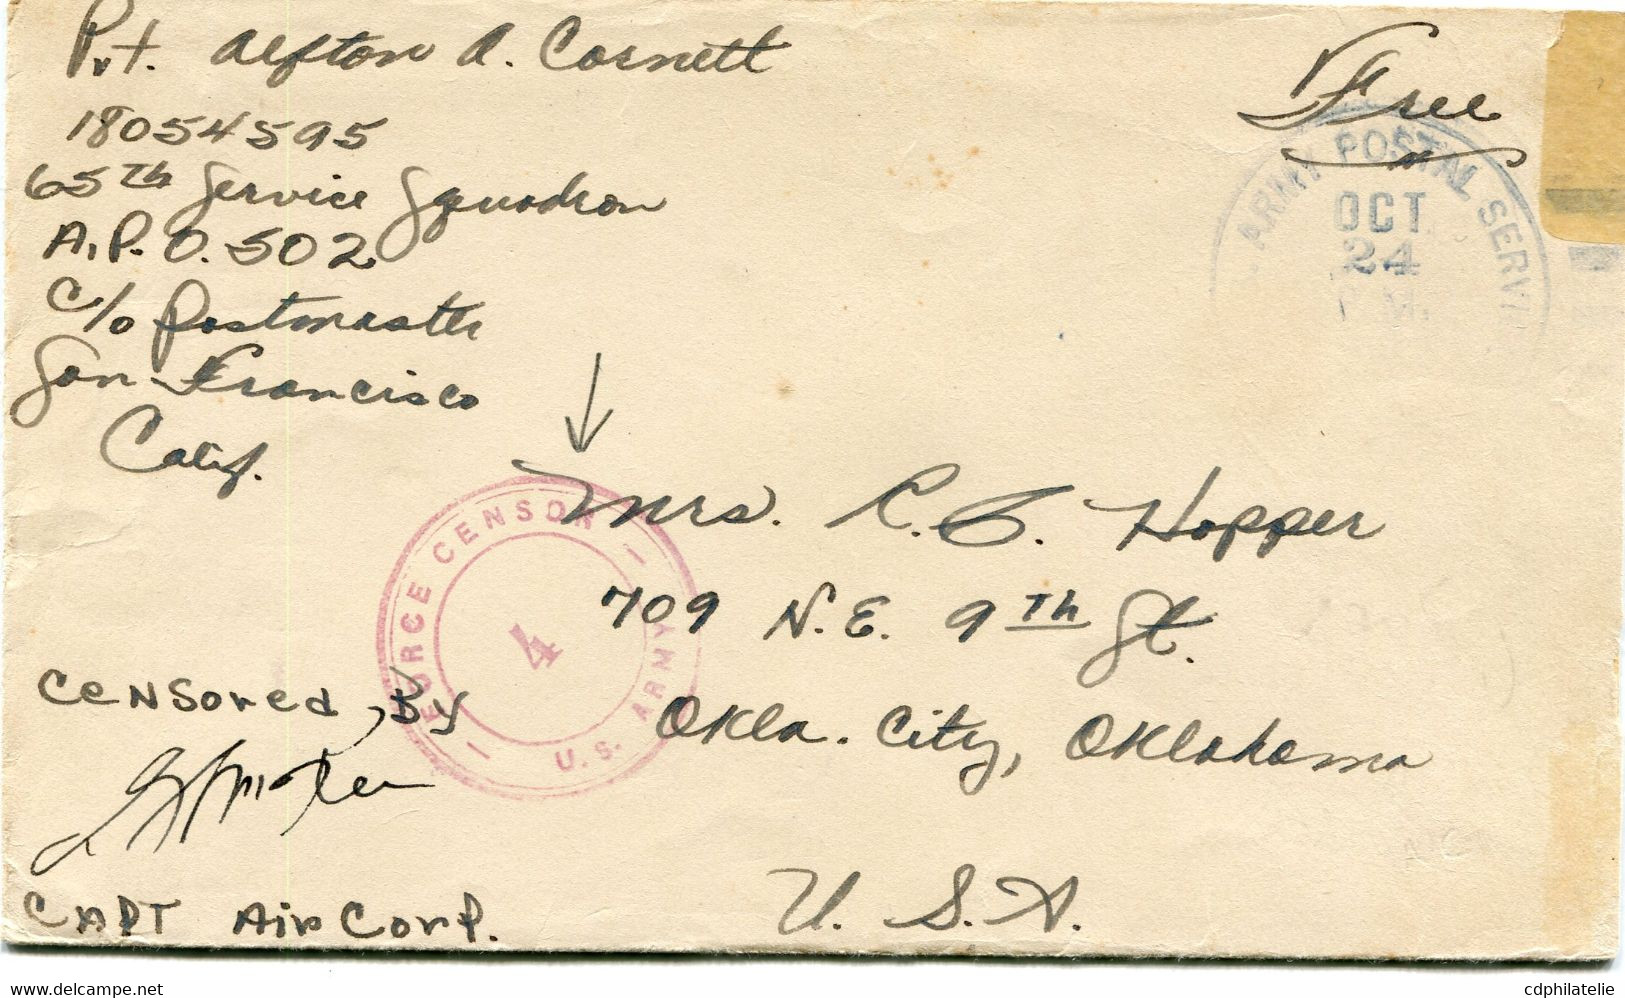 Pvt. Alfton A. Cornett
18054595
65th Service Squadron
A.P.O. 502
c/o Postmaster
San Francisco
Calif.
Free
ARMY POSTAL SERVI
OCT
24
P.M.
Mrs. C. C. Hopper
709 N.E. 9th St.
Okla. City, Oklahoma
U. S. A.
FORCE CENSOR
4
U.S. ARMY
Censored, By
CAPT Air Corp.
www.delcampe.net
cdphilatelie